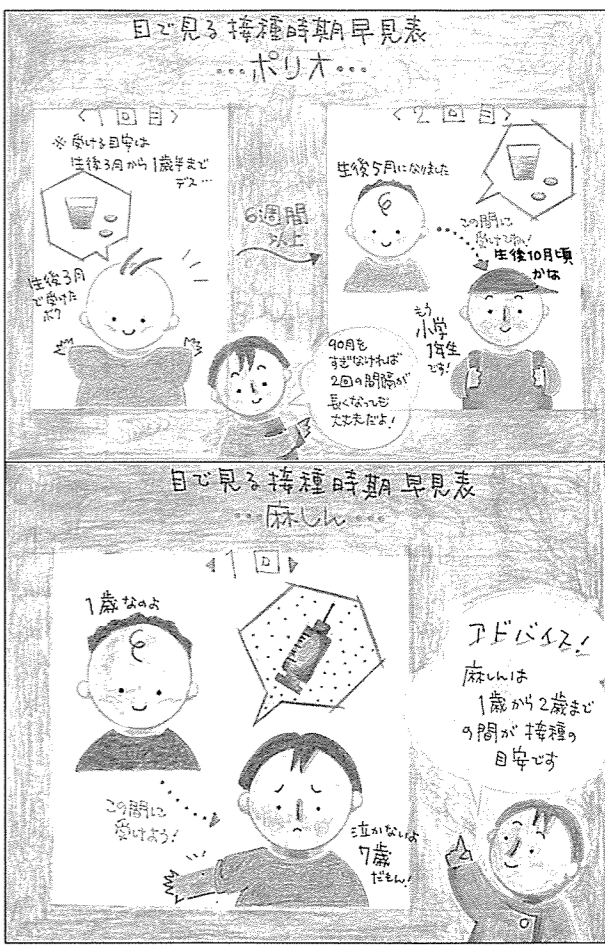 目で見る接種時期早見表
…ポリオ…
〈1回目〉
※受ける目安は
生後3月から1歳半まで
デス…
生後3月
で受けた
ボク
6週間
以上
〈2回目〉
生後5月になりました
この間に
受けてね!
生後10月頃
かな
もう
小学
1年生
です!
90月を
すぎなければ
2回の間隔が
長くなっても
大丈夫だよ!
目で見る接種時期早見表
…麻しん…
1回
1歳なのよ
この間に
受けよう!
泣かないよ
7歳
だもん!
アドバイス!
麻しんは
1歳から2歳まで
の間が接種の
目安です